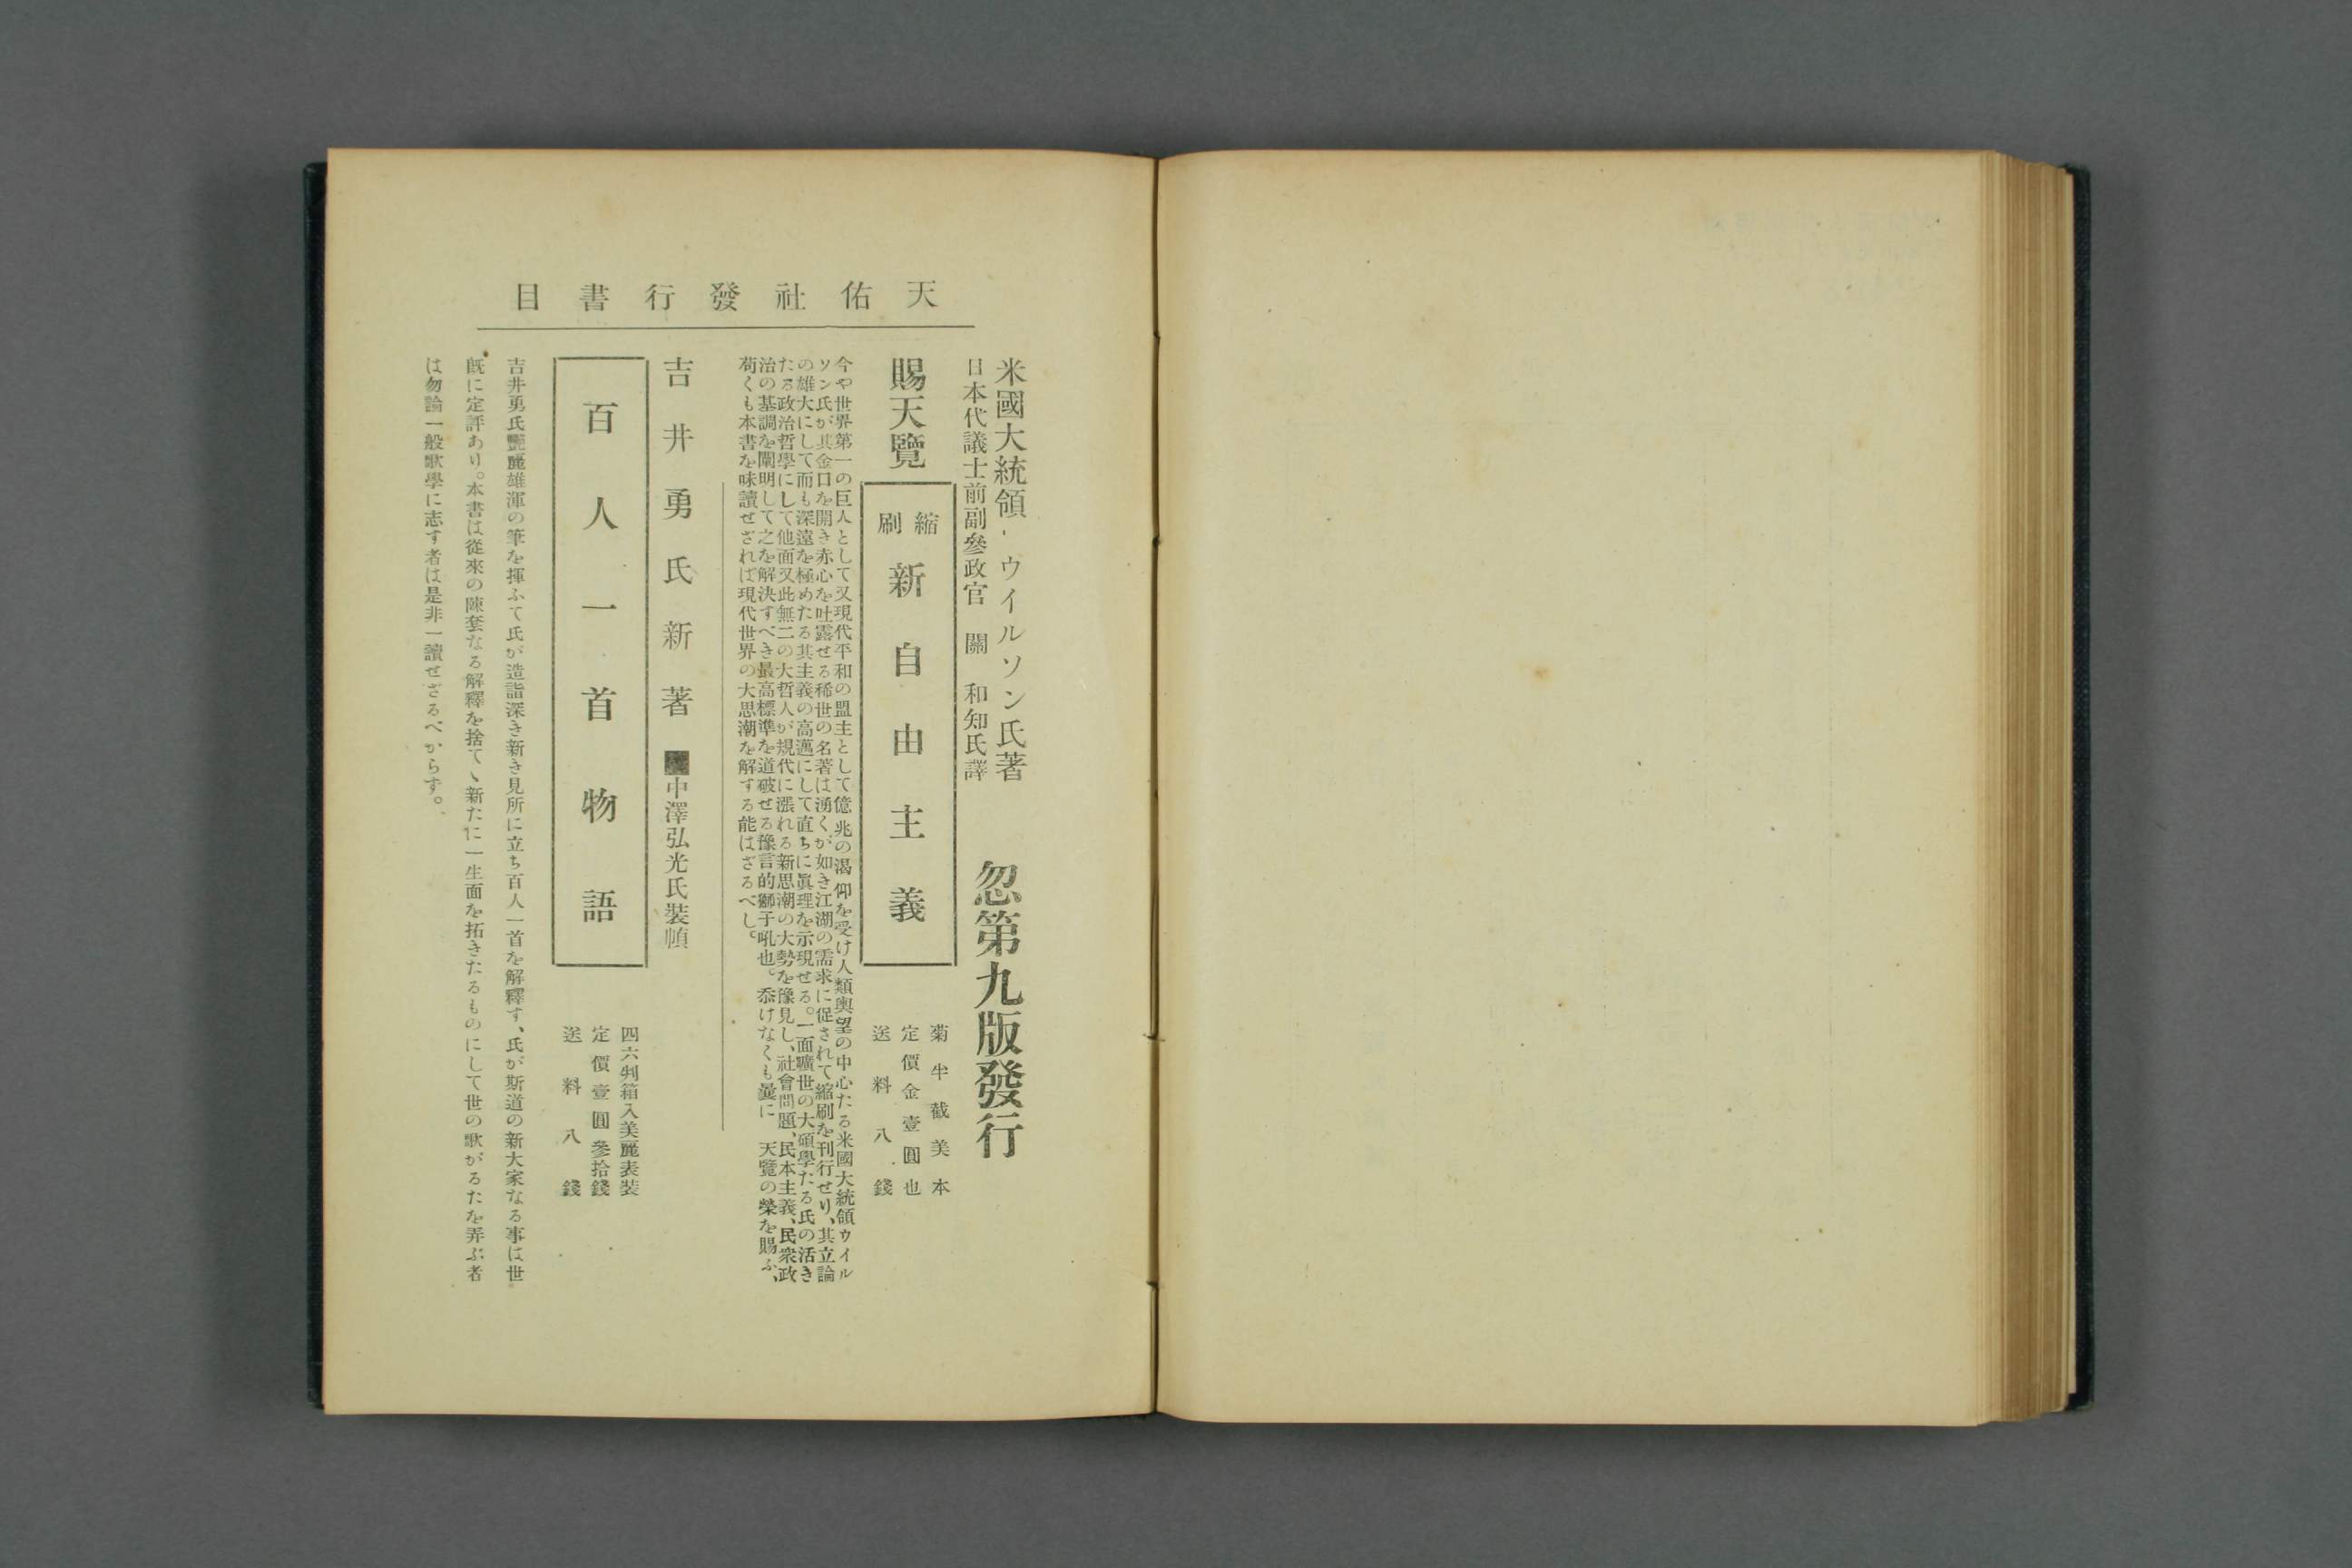 天佑社發行書目
米國大統領、ウイルソン氏著
日本代議士前副參政官　關　和知氏譯
忽第九版發行
賜天覽
縮刷　新自由主義
菊半截美本
定價金壹圓也
送料八錢
今や世界第一の巨人として又現代平和の盟主として億兆の渴仰を受け人類輿望の中心たる米國大統領ウイル
ソン氏が其金口を開き赤心を吐露せる稀世の名著は湧くが如き江湖の需求に促されて縮刷を刊行せり、其立論
の雄大にして而も深遠を極めたる其主義の高邁にして直ちに眞理を示現せる。一面曠世の大碩學たる氏の活き
たる政治哲學にして他面又此無二の大哲人が規代に漲れる新思潮の大勢を豫見し、社會問題、民本主義、民衆政
治の基調を闡明して之を解決すべき最高標準を道破せる豫言的獅子吼也。忝けなくも曩に　天覽の榮を賜ふ、
苟くも本書を味讀せざれば現代世界の大思潮を解する能はざるべし。
吉井勇氏新著
■中澤弘光氏裝幀
百人一首物語
四六判箱入美麗表裝
定價壹圓參拾錢
送料八錢
吉井勇氏艷麗雄渾の筆を揮ふて氏が造詣深き新き見所に立ち百人一首を解釋す、氏が斯道の新大家なる事は世
既に定評あり。本書は從來の陳套なる解釋を捨てゝ新たに一生面を拓きたるものにして世の歌がるたを弄ぶ者
は勿論一般歌學に志す者は是非一讀せざるべからず。